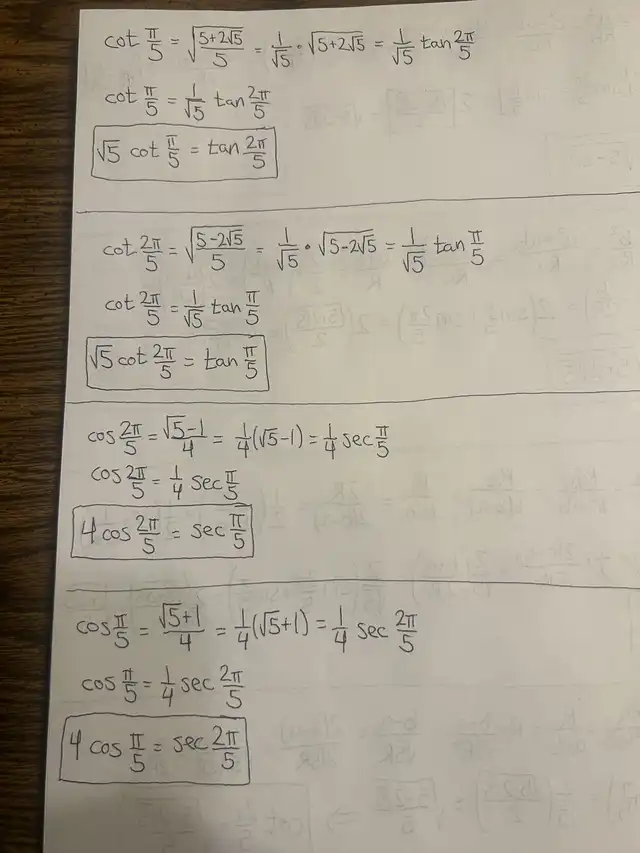 cot π/5 = √((5+2√5)/5) = 1/√5 • √(5+2√5) = 1/√5 tan 2π/5
cot π/5 = 1/√5 tan 2π/5
√5 cot π/5 = tan 2π/5
cot 2π/5 = √((5-2√5)/5) = 1/√5 • √(5-2√5) = 1/√5 tan π/5
cot 2π/5 = 1/√5 tan π/5
√5 cot 2π/5 = tan π/5
cos 2π/5 = (√5-1)/4 = 1/4(√5-1) = 1/4 sec π/5
cos 2π/5 = 1/4 sec π/5
4 cos 2π/5 = sec π/5
cos π/5 = (√5+1)/4 = 1/4(√5+1) = 1/4 sec 2π/5
cos π/5 = 1/4 sec 2π/5
4 cos π/5 = sec 2π/5